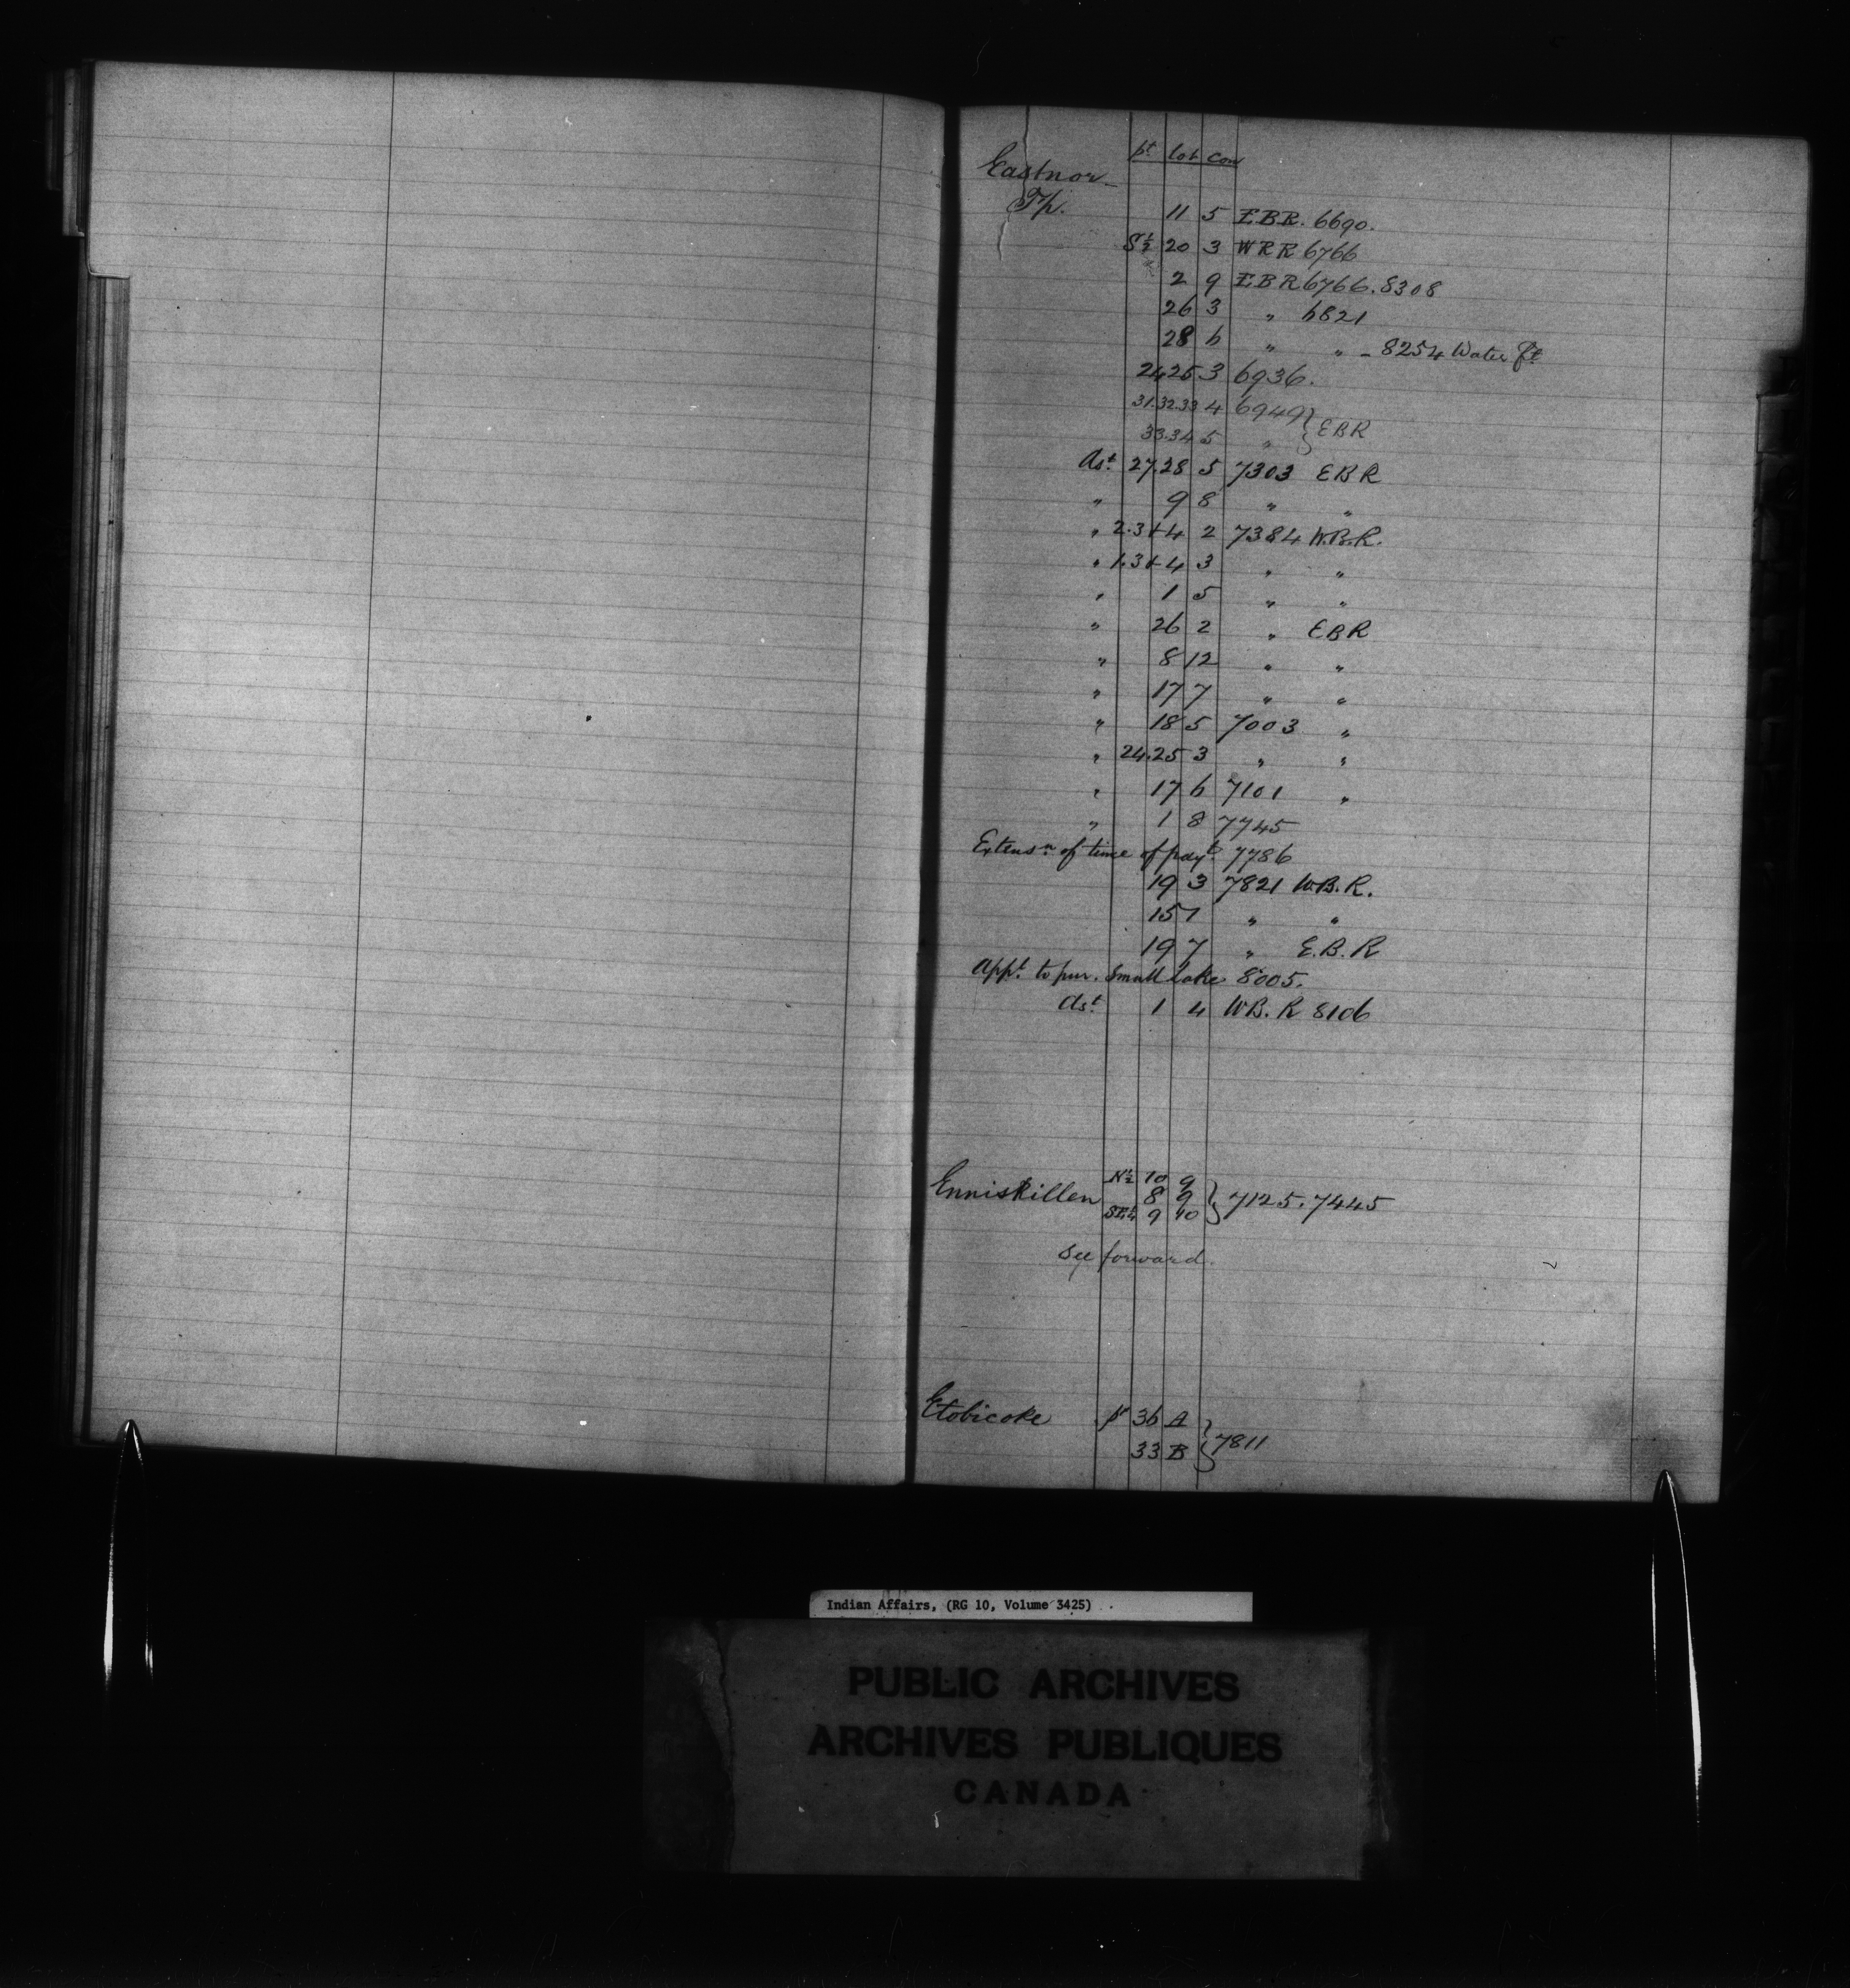 pt lot con
Eastnor
Tp. 11 5 EBR. 6690.
S½ 20 3 WRR 6766
2 9 EBR 6766. 8308
26 3 " 6821
28 6 " " - 8254 Water ft
24.25 3 6936.
31.32.33 4 6949 } EBR
33.34 5 "
Ast. 27.28 5 7303 EBR
" 9 8 " "
" 2.3+4 2 7384 W.B.R.
" 1.3+4 3 " "
" 1 5 " "
" 26 2 " EBR
" 8 12 " "
" 17 7 " "
" 18 5 7003 "
" 24.25 3 " "
" 17 6 7101 "
" 1 8 7745
Extensn. of time of payt. 7786
19 3 7821 W.B.R.
15 7 " "
19 7 " E.B.R
Appt. to pur. Small Lake 8005.
Ast. 1 4 WB.R 8106
N½ 10 9
Enniskillen 8 9 } 7125. 7445
SE¼ 9 10
See forward.
Etobicoke pt 36 A
33 B } 7811
Indian Affairs, (RG 10, Volume 3425)
PUBLIC ARCHIVES
ARCHIVES PUBLIQUES
CANADA